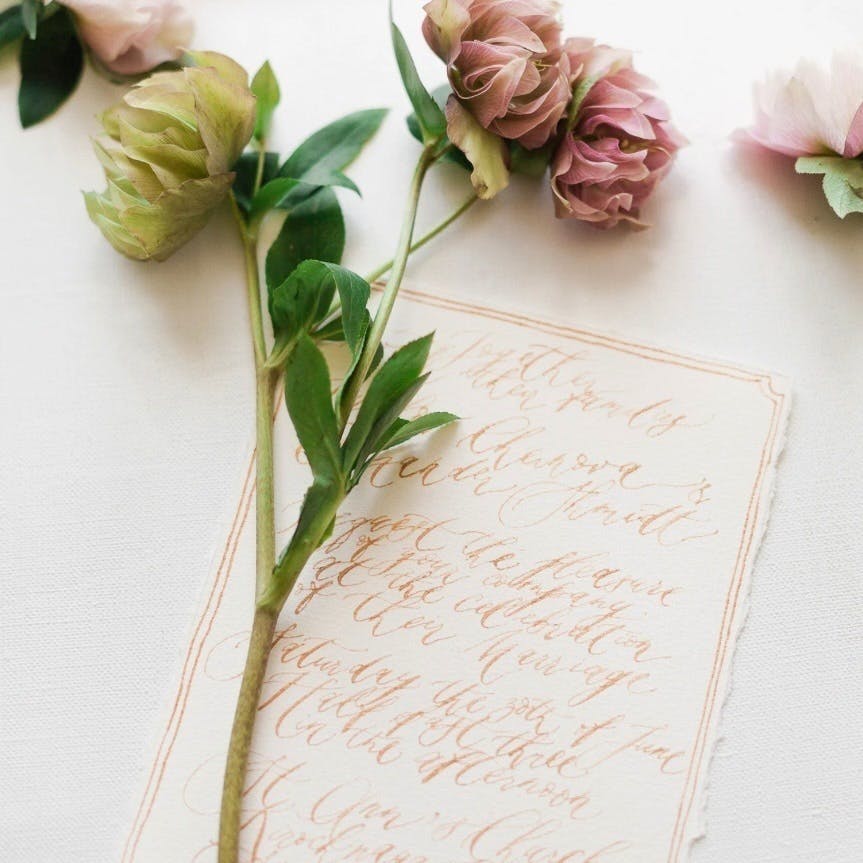 Together
their families
Chernova &
ander
Request the pleasure
of your company
at the celebration
of their Marriage
Saturday the 30th of June
Half past three
in the afternoon
St Ann's Church